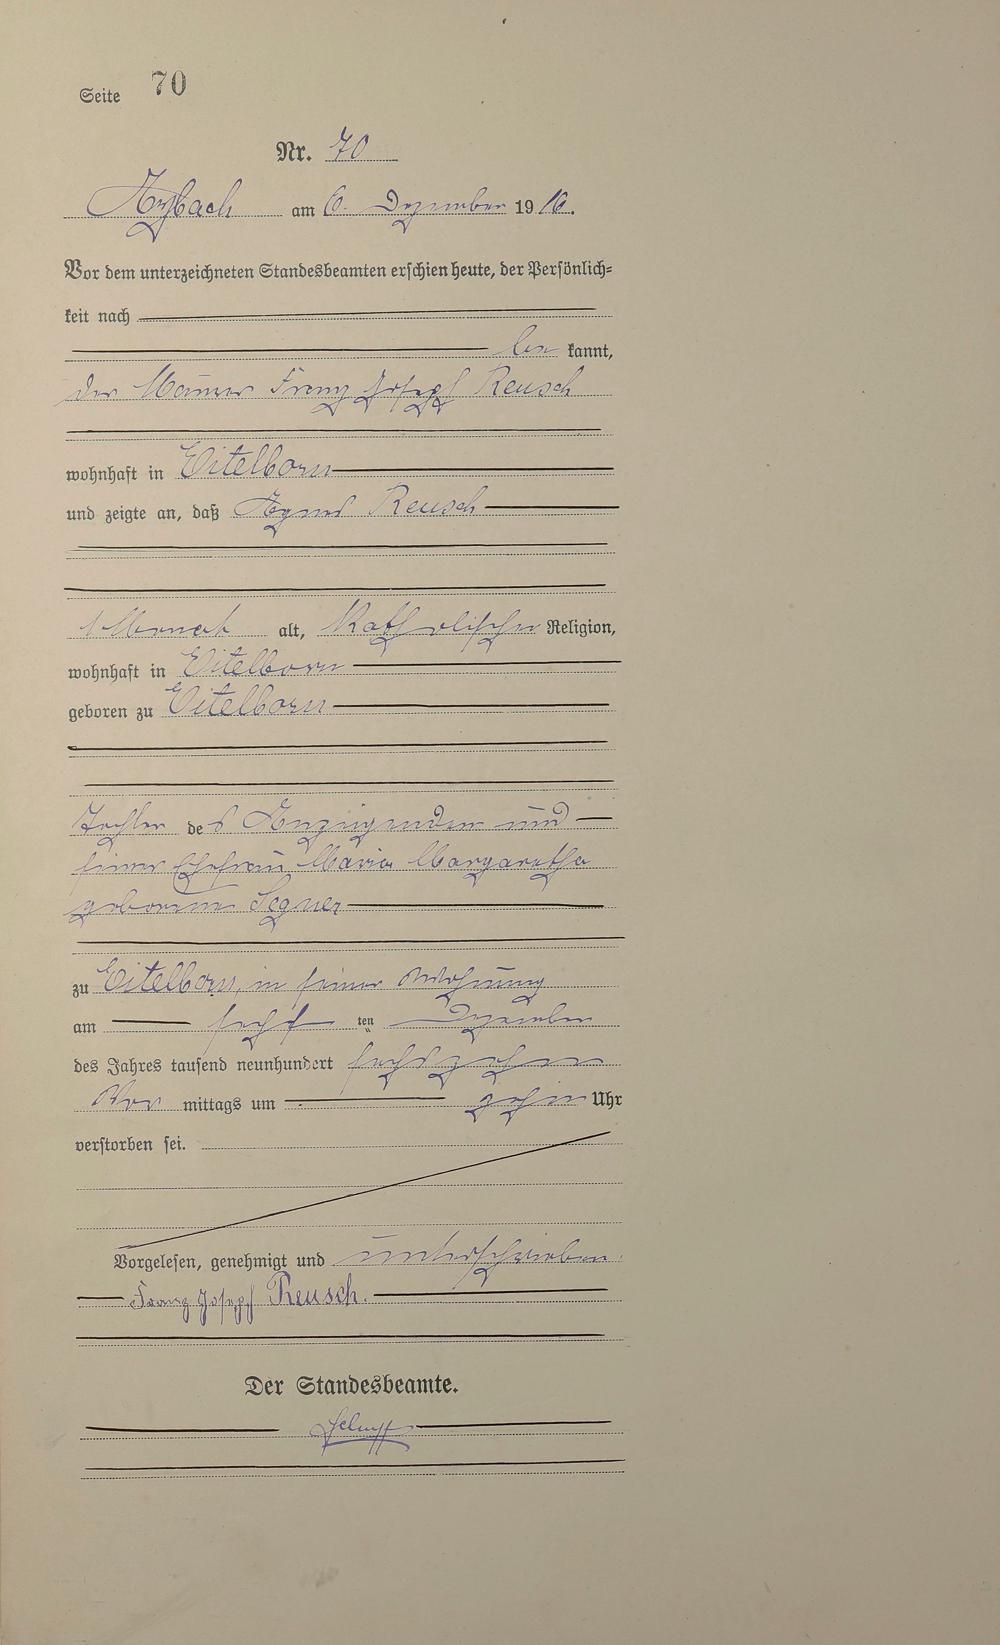 Seite 70
Nr. 70
Arzbach am 6. Dezember 1916.
Vor dem unterzeichneten Standesbeamten erschien heute, der Persönlich=
keit nach
be kannt,
der Maurer Franz Joseph Reusch
wohnhaft in Eitelborn
und zeigte an, daß Agnes Reusch
1 Monat alt, Katholischer Religion,
wohnhaft in Eitelborn
geboren zu Eitelborn
Tochter des Anzeigenden und
seiner Ehefrau Maria Margaretha
geborenen Segner
zu Eitelborn, in seiner Wohnung
am sechs ten Dezember
des Jahres tausend neunhundert sechszehn
Vor mittags um zehn Uhr
verstorben sei.
Vorgelesen, genehmigt und unterschrieben.
Franz Joseph Reusch.
Der Standesbeamte.